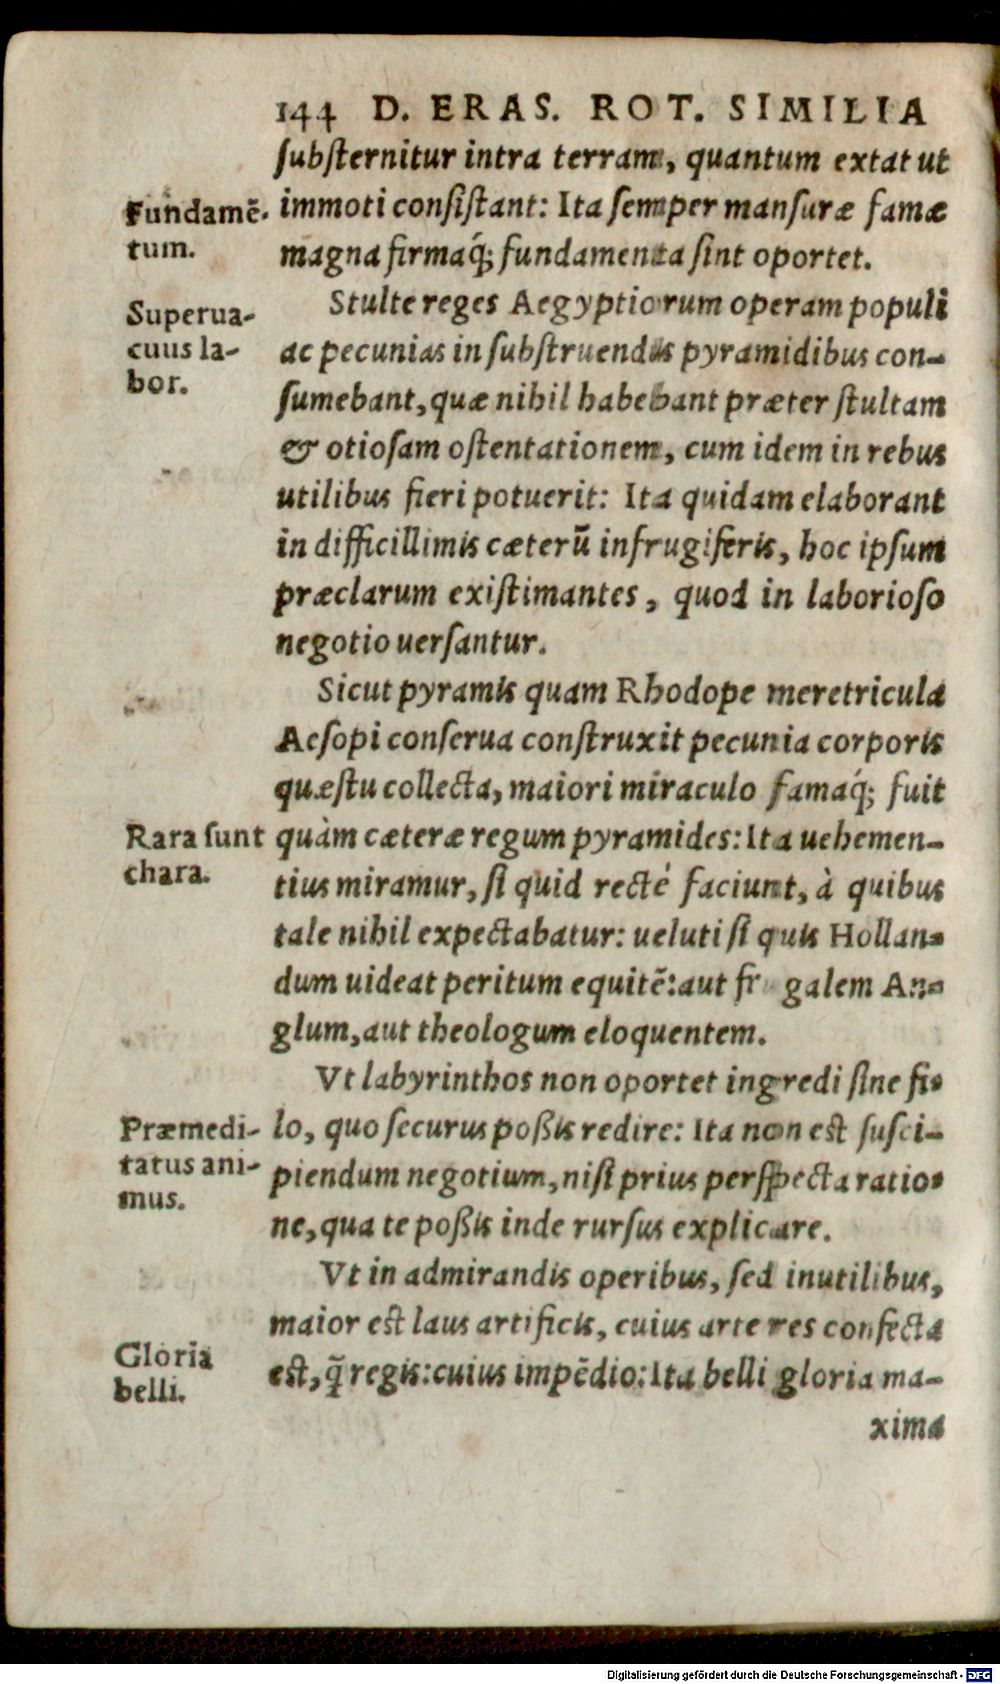 144 D. ERAS. ROT. SIMILIA
ſubſternitur intra terram, quantum extat ut
Fundamē-
tum.
immoti conſiſtant: Ita ſemper manſuræ famæ
magna firmaq́; fundamenta ſint oportet.
Superua-
cuus la-
bor.
Stulte reges Aegyptiorum operam populi
ac pecunias in ſubſtruendis pyramidibus con-
ſumebant, quæ nihil habebant præter ſtultam
& otioſam oſtentationem, cum idem in rebus
utilibus fieri potuerit: Ita quidam elaborant
in difficillimis cæterū infrugiferis, hoc ipſum
præclarum exiſtimantes, quod in laborioſo
negotio uerſantur.
Sicut pyramis quam Rhodope meretricula
Aeſopi conſerua conſtruxit pecunia corporis
quæſtu collecta, maiori miraculo famaq́; fuit
Rara ſunt
chara.
quàm cæteræ regum pyramides: Ita uehemen-
tius miramur, ſi quid recté faciunt, à quibus
tale nihil expectabatur: ueluti ſi quis Hollan-
dum uideat peritum equitē: aut frugalem An-
glum, aut theologum eloquentem.
Vt labyrinthos non oportet ingredi ſine fi-
Præmedi-
tatus ani-
mus.
lo, quo ſecurus poßis redire: Ita non eſt ſuſci-
piendum negotium, niſi prius perſpecta ratio-
ne, qua te poßis inde rurſus explicare.
Vt in admirandis operibus, ſed inutilibus,
maior eſt laus artificis, cuius arte res confecta
Gloria
belli.
eſt, q̃ regis: cuius impēdio: Ita belli gloria ma-
xima
Digitalisierung gefördert durch die Deutsche Forschungsgemeinschaft - DFG